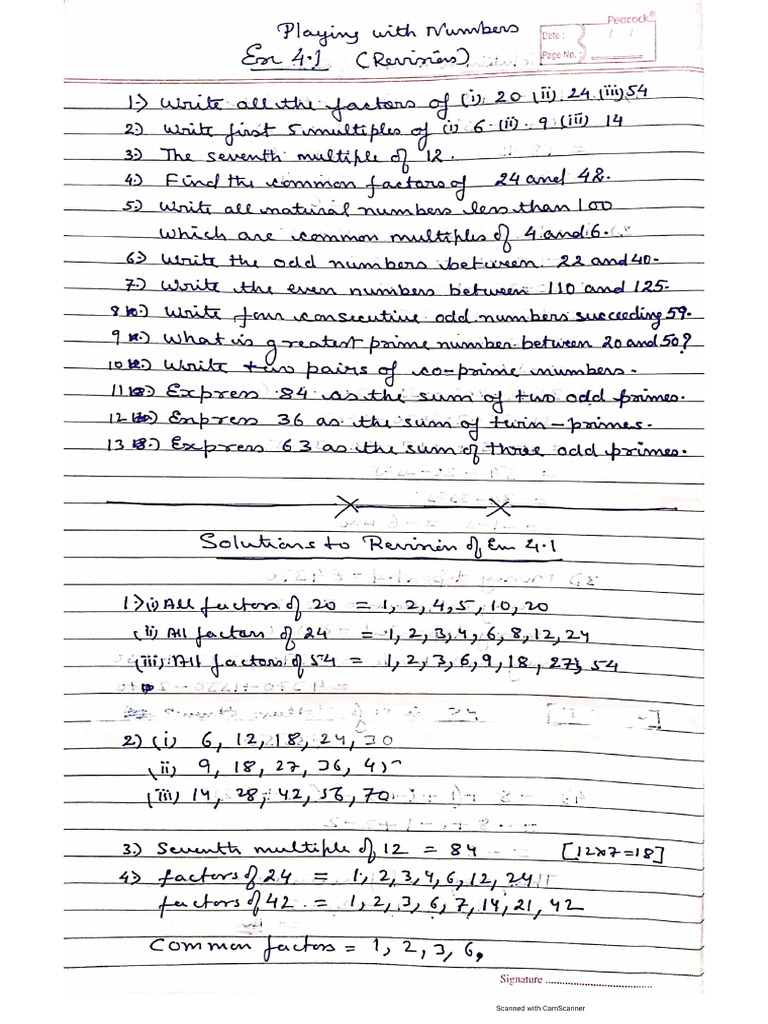 Playing with Numbers
Peacock®
Date : / /
Ex 4.1 (Revision)
Page No. :
1.) Write all the factors of (i) 20 (ii) 24 (iii) 54
2.) Write first 5 multiples of (i) 6 (ii) 9 (iii) 14
3.) The seventh multiple of 12.
4.) Find the common factors of 24 and 42.
5.) Write all natural numbers less than 100
which are common multiples of 4 and 6.
6.) Write the odd numbers between 22 and 40.
7.) Write the even numbers between 110 and 125.
8 .) Write four consecutive odd numbers succeeding 59.
9 .) What is greatest prime number between 20 and 50?
10 .) Write two pairs of co-prime numbers.
11 .) Express 84 as the sum of two odd primes.
12 .) Express 36 as the sum of twin-primes.
13 .) Express 63 as the sum of three odd primes.
Solutions to Revision of Ex 4.1
1.) (i) All factors of 20 = 1, 2, 4, 5, 10, 20
(ii) All factors of 24 = 1, 2, 3, 4, 6, 8, 12, 24
(iii) All factors of 54 = 1, 2, 3, 6, 9, 18, 27, 54
2.) (i) 6, 12, 18, 24, 30
(ii) 9, 18, 27, 36, 45
(iii) 14, 28, 42, 56, 70
3.) Seventh multiple of 12 = 84 [12x7=18]
4) factors of 24 = 1, 2, 3, 4, 6, 12, 24
factors of 42 = 1, 2, 3, 6, 7, 14, 21, 42
Common factors = 1, 2, 3, 6,
Signature ....................................
Scanned with CamScanner